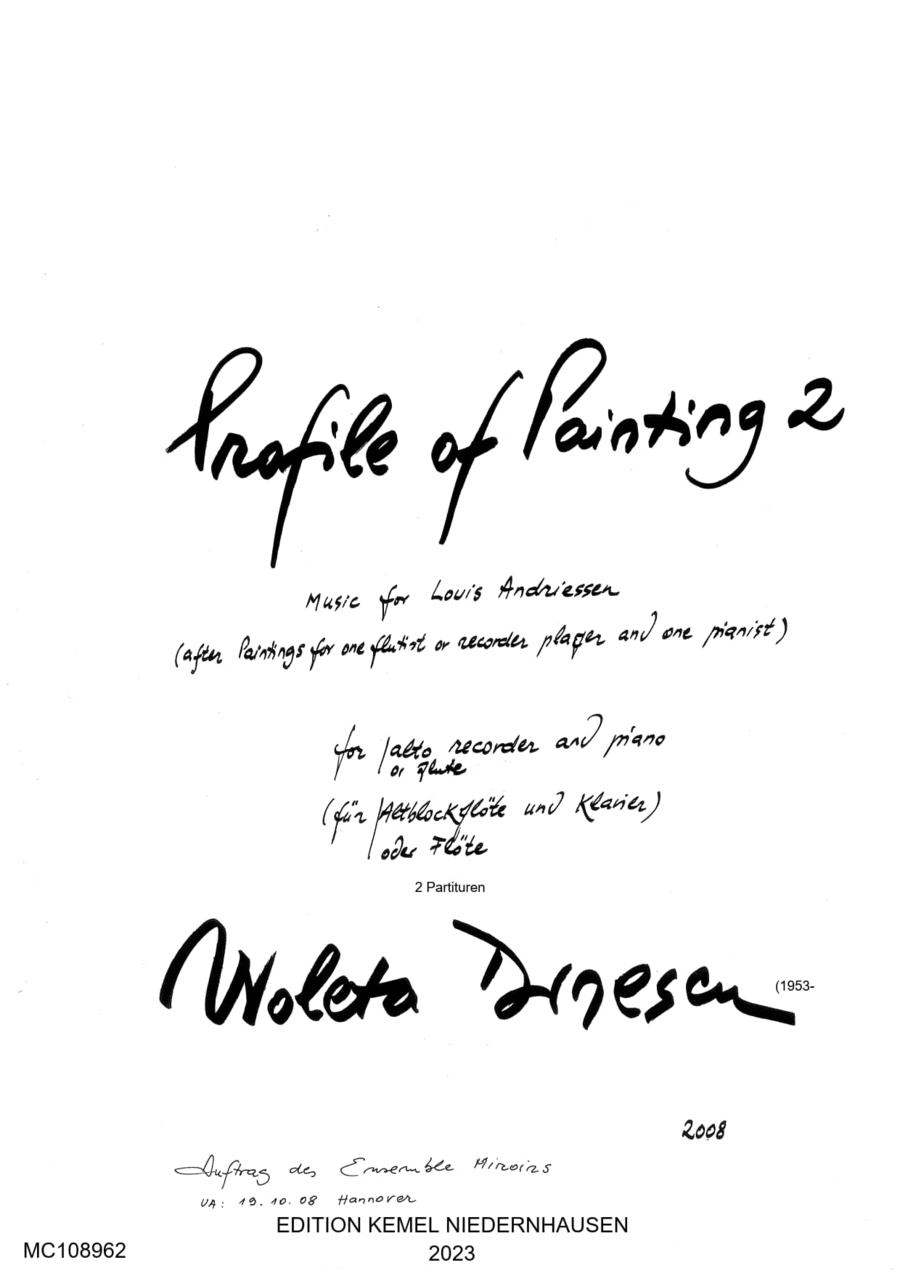 Profile of Painting 2
Music for Louis Andriessen
(after Paintings for one flutist or recorder player and one pianist)
for alto recorder and piano
or flute
(für Altblockflöte und Klavier)
oder Flöte
2 Partituren
Violeta Dinescu (1953-
2008
Auftrag des Ensemble Miroirs
UA: 19.10.08 Hannover
EDITION KEMEL NIEDERNHAUSEN
MC108962 2023